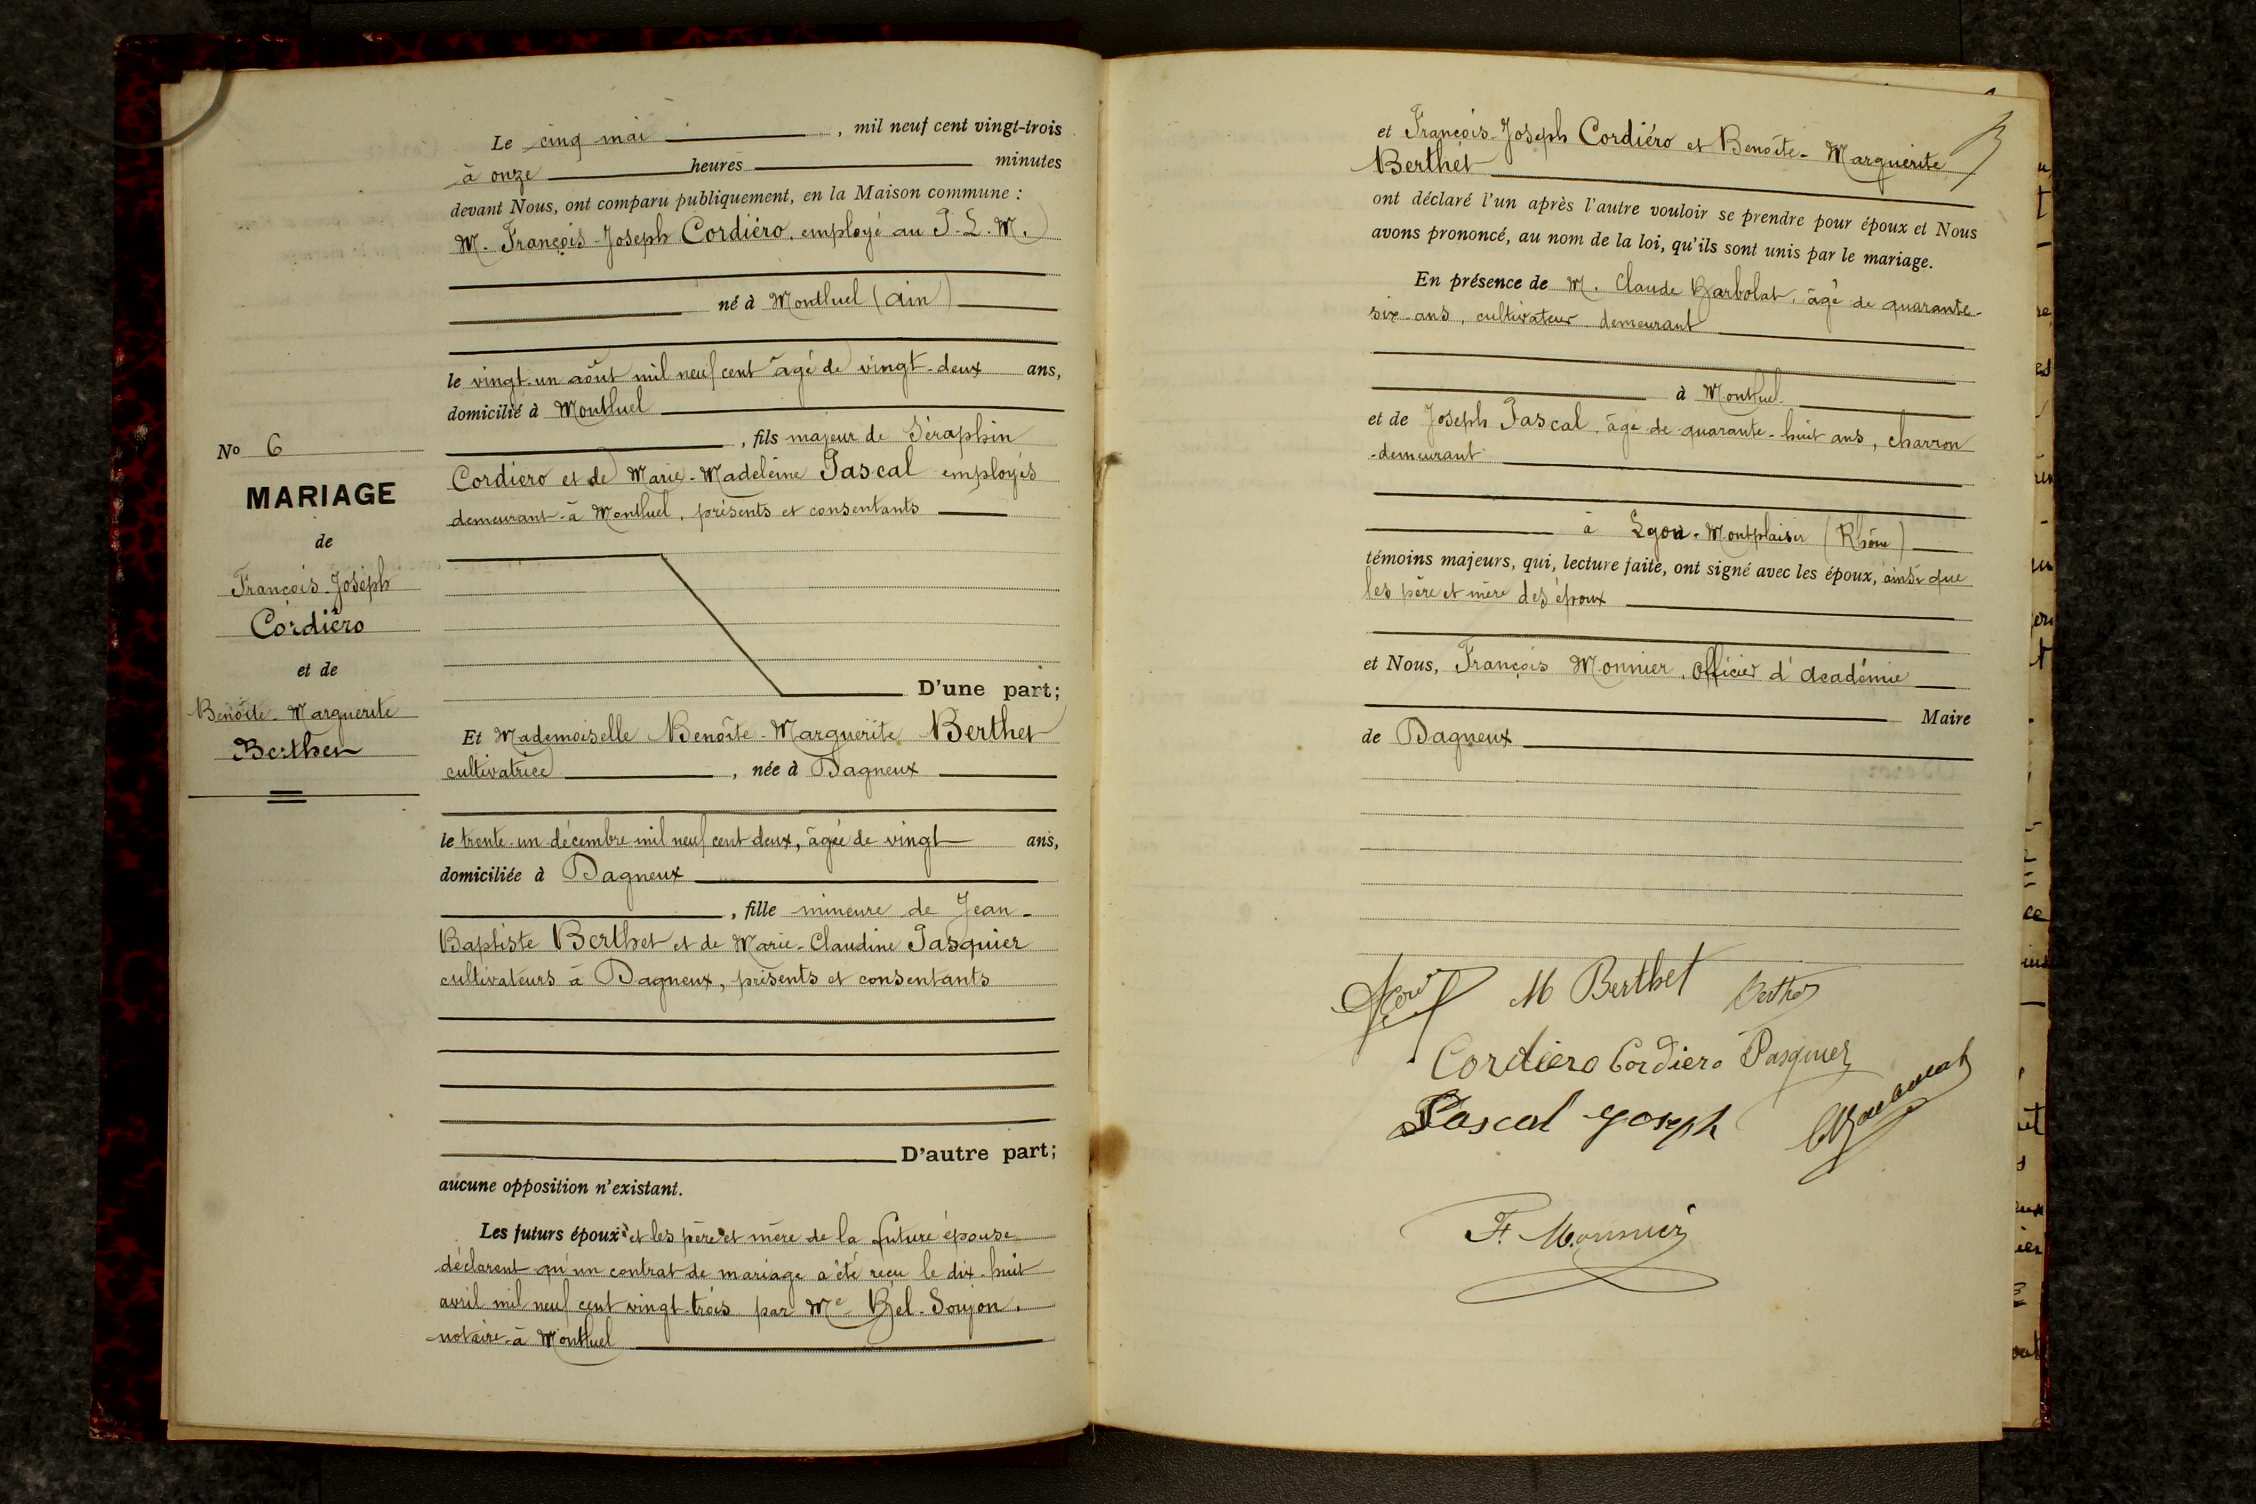 No 6
MARIAGE
de
François-Joseph
Cordiéro
et de
Benoîte-Marguerite
Berthet
Le cinq mai, mil neuf cent vingt-trois
à onze heures minutes
devant Nous, ont comparu publiquement, en la Maison commune :
M. François-Joseph Cordiéro, employé au P.L.M.
né à Montluel (Ain)
le vingt-un août mil neuf cent âgé de vingt-deux ans,
domicilié à Montluel
, fils majeur de Séraphin
Cordiero et de Marie-Madeleine Pascal employés
demeurant à Montluel, présents et consentants
D'une part;
Et Mademoiselle Benoîte-Marguerite Berthet
cultivatrice, née à Dagneux
le trente-un décembre mil neuf cent deux, âgée de vingt ans,
domiciliée à Dagneux
, fille mineure de Jean-
Baptiste Berthet et de Marie-Claudine Pasquier
cultivateurs à Dagneux, présents et consentants
D'autre part;
aucune opposition n'existant.
Les futurs époux et les père et mère de la future épouse
déclarent qu'un contrat de mariage a été reçu le dix-huit
avril mil neuf cent vingt-trois par Me Bel-Soujon,
notaire à Montluel
et François-Joseph Cordiéro et Benoîte-Marguerite
Berthet
ont déclaré l'un après l'autre vouloir se prendre pour époux et Nous
avons prononcé, au nom de la loi, qu'ils sont unis par le mariage.
En présence de M. Claude Barbolat, âgé de quarante-
six ans, cultivateur demeurant
à Montluel
et de Joseph Pascal, âgé de quarante-huit ans, charron
demeurant
à Lyon-Montplaisir (Rhône)
témoins majeurs, qui, lecture faite, ont signé avec les époux, ainsi que
les père et mère des époux
et Nous, François Monnier, Officier d'Académie
Maire
de Dagneux
M Berthet Berthet
Cordiero Cordiero Pasquier
Pascal Joseph
F. Monnier